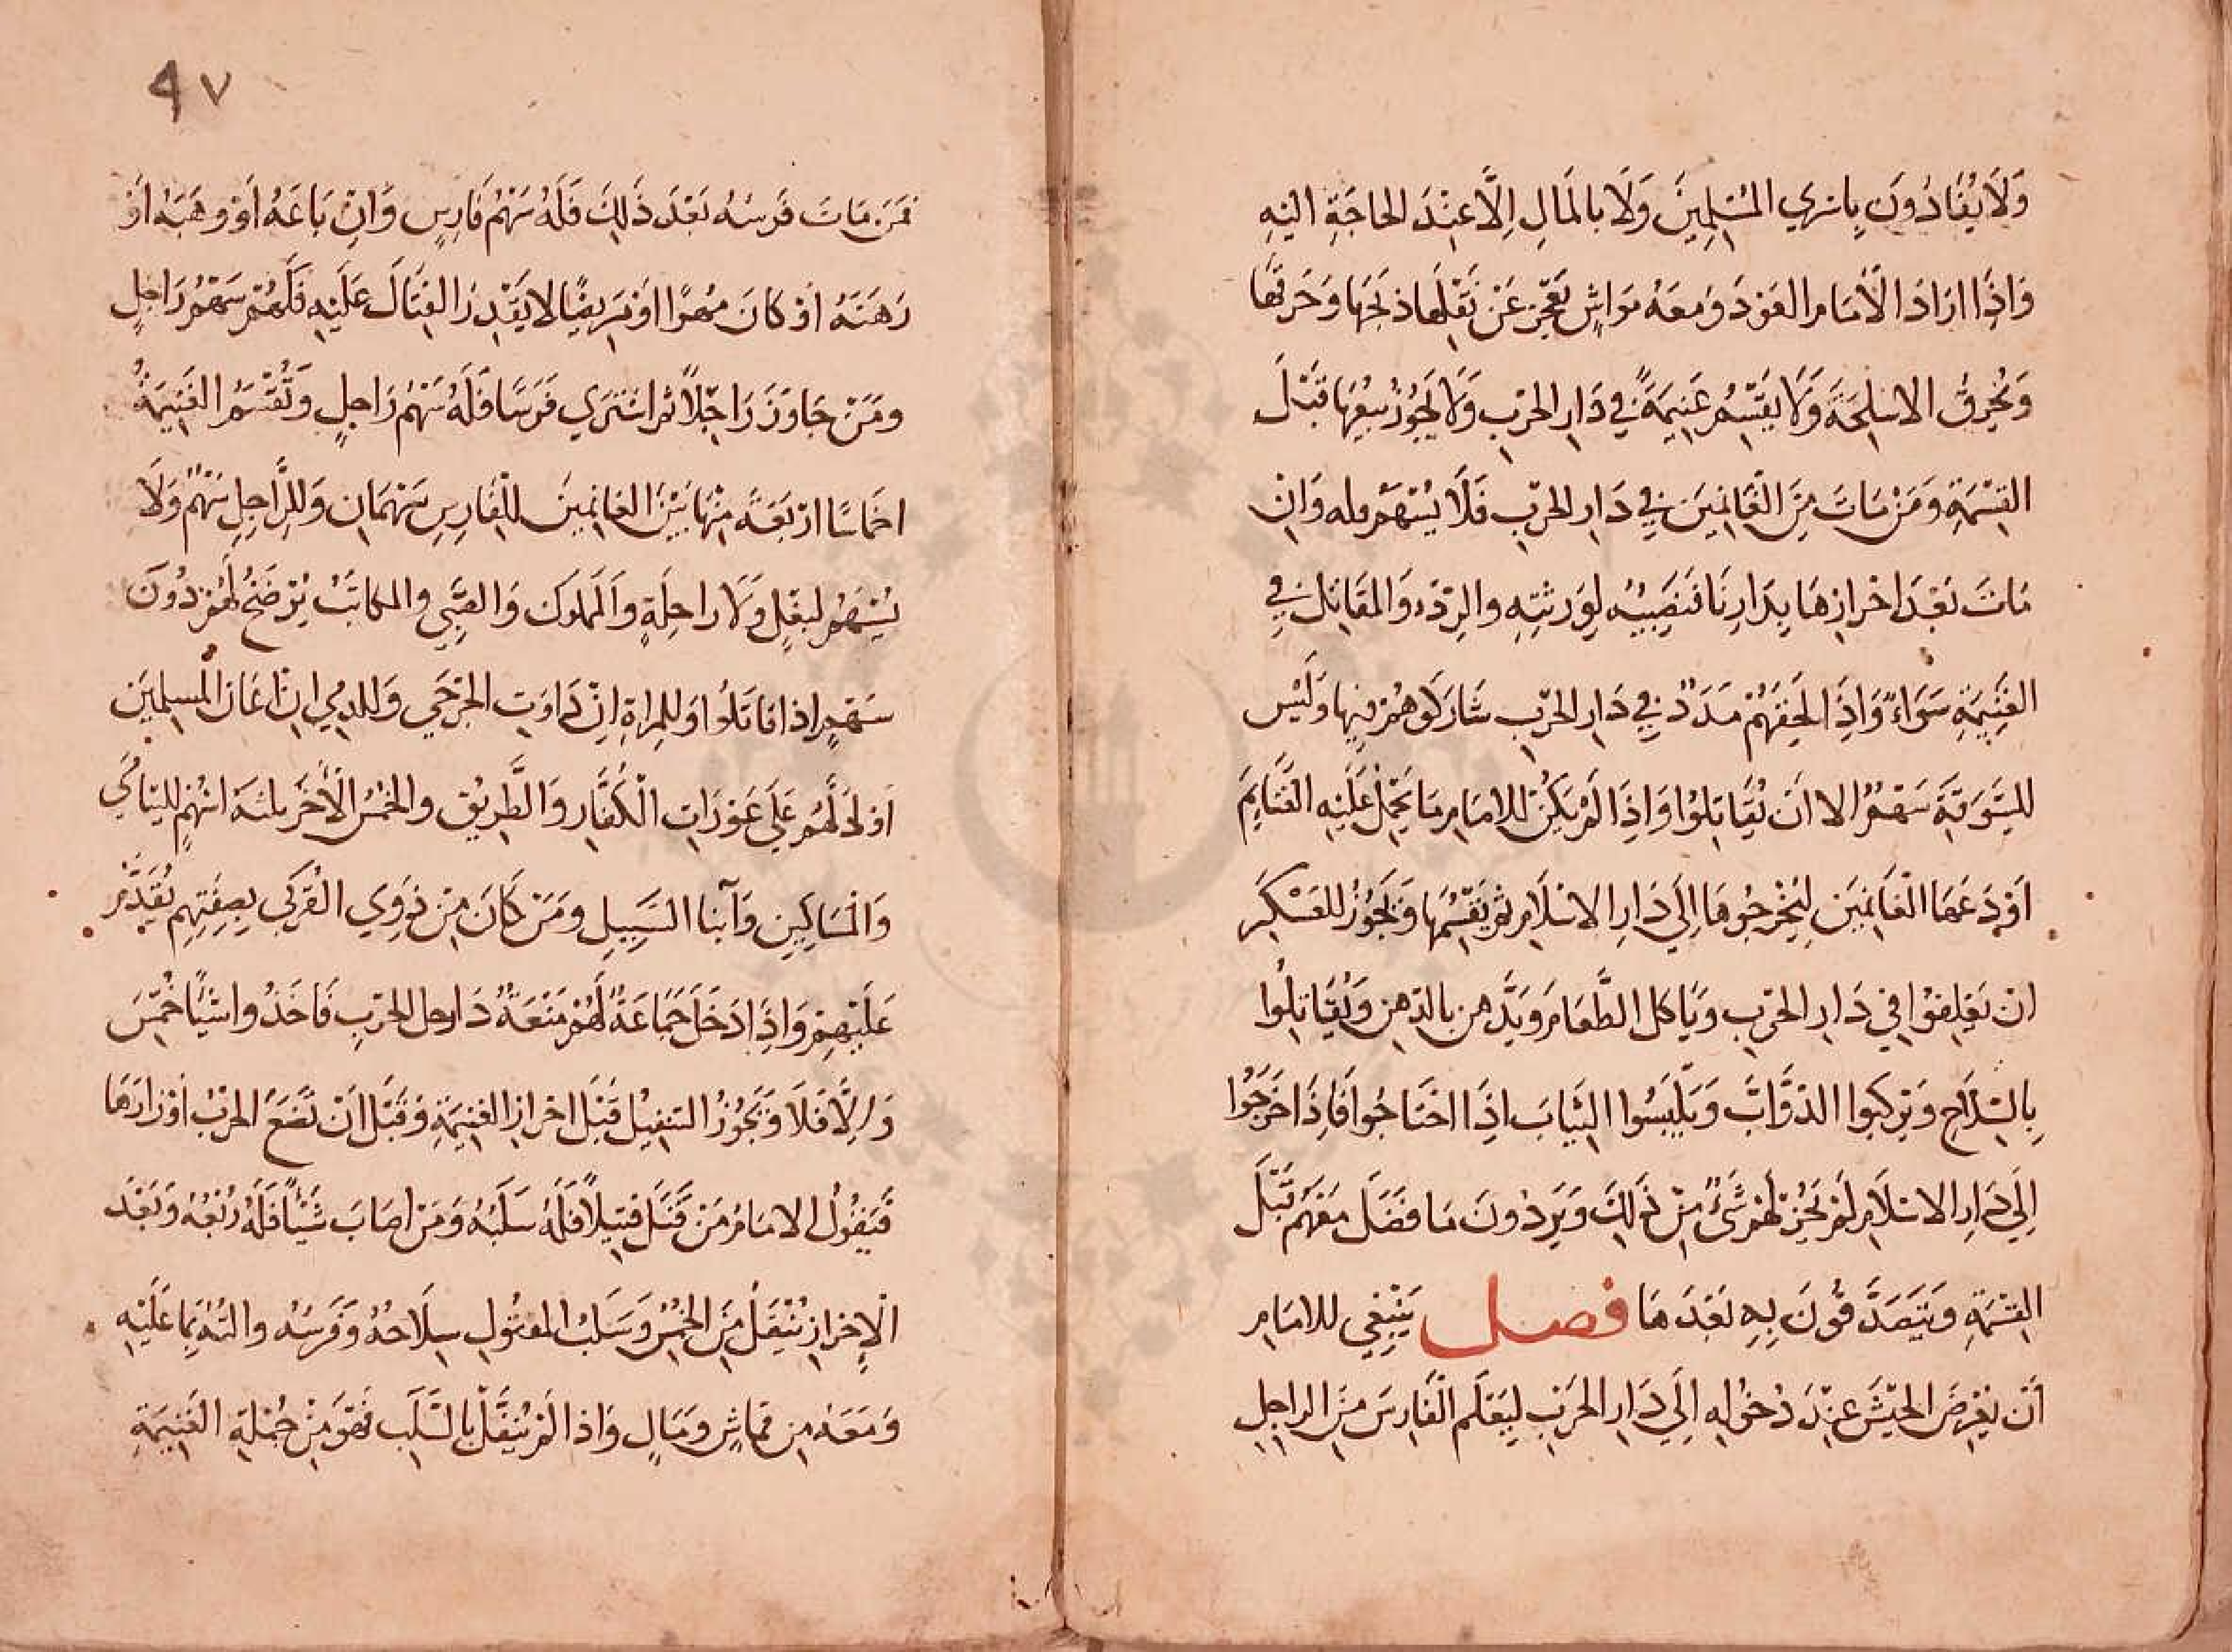 وَلَا يُفَادُونَ بِاسْرَي المُسْلِمِينَ وَلَا بالمَالِ اِلَّا عِنْدَ الحاجَةِ اليْهِ
وَاِذَا ارَادَ الْأمَام العَوْدَ وَمعَهُ موَاشٍ يَعْجِز عَنْ نَقْلِهَا ذبَحَهَا وَحَرقَهَا
وَيُحْرِقُ الاسْلِحَةَ وَلَا يَقْسِمُ غَنِيمَةً فِي دَارِ الحَرْبِ وَلَا يَجُوزُ بَيْعُهَا قَبْلَ
القِسْمَةِ وَمَنْ مَاتَ مِنَ الْغَانِمِينَ فِي دَارِ الحَرْبِ فَلَا يُسْهَمْ له وَانْ
مَاتَ بَعْدَ احْرازِهَا بِدَارِنَا فَنَصِيبُهُ لِوَرثتِهِ والرِدْهُ وَالمقَاتِل فِي
الغَنِيمَةِ سَوَاءٌ وَاِذَا لَحِقَهُمْ مَدَدٌ فِي دَارِ الحَرْبِ شَارَكوهُمْ فِيهَا وَلَيْس
للسُوقَةِ سَهْمٌ الا اَن يُقَاتِلُوا وَاِذَا لَمْ يَكُنْ للامَامِ مَا يَحْمِلُ عَلَيْهِ الغَنَايِمَ
اَوْدَعَهَا الْغَانِمِينَ لِيُخْرِجُوهَا اِلَي دَارِ الاسْلَامِ ثمَّ يَقْسِمُهَا وَيَجُوزُ للعَسْكَرِ
انْ يَعْلِفوُا فِي دَارِ الحَرْبِ وَيَاكل الطَّعَامَ وَيَدَّهن بالدّهنِ وَيُقَاتِلُوا
بِالسِّلَاحِ وَيَرْكبوا الدَوَّابَّ وَيَلْبَسُوا الثِيَابَ اِذَا احْتَاجُوا فَاِذَا خَرَجُوا
اِلَي دَارِ الاسْلَامِ لَمْ يَجُزْ لَهُمْ شَيءٌ مِنْ ذَلِكَ وَيَرِدُونَ مَا فضَلَ مَعَهُمْ قَبْلَ
القِسْمَةِ وَيَتَصَدَّقُونَ بِهِ بَعْدَهَا فصل يَنْبَغِي للامَامِ
اَنْ يَعْرِضَ الجَيْشَ عِنْدَ دُخوُلِهِ اِلَي دَارِ الحَرْبِ لِيَعْلَم الْفَارِسَ مِنَ الراجِلِ
٩٧
فمَن مَاتَ فَرسُهُ بَعْدَ ذَلِكَ فَلَهُ سَهْمُ فَارِسٍ وَانْ بَاعَهُ اَوْ وهَبَهُ اَوْ
رَهَنَهُ اَوْ كانَ مُهْرًا اوْ مَرِيضًا لا يَقْدِرُ القِتَالَ عَلَيْهِ فَلَهُم سَهْمُ رَاجِلٍ
ومَنْ جَاوَزَ رَاجِلاً ثم اشترَي فَرَسًا فَلَهُ سَهْمُ رَاجِلٍ وَتُقْسَمُ الغَنِيمَةُ
اخمَاسًا ارْبَعَةً مِنْهَا بَيْنَ الغانِمِينَ للْفَارِسِ سَهْمَانِ وَللرَّاجِلِ سَهْمٌ وَلَا
يُسْهَمُ لبَغْلٍ وَلَا راحِلَةٍ وَاَلمملوك وَالصَّبِي والمكاتَبْ يُرْضَخُ لَهُمْ دُونَ
سَهْمٍ اذا قاتَلُوا وللمراةِ اِنْ دَاوَتِ الجَرْحَي وَللذِمِي اِنْ اعَانَ المُسلِمِينَ
اَوْ دلَّهُم عَلَي عَوْرَاتِ الْكُفَّارِ وَالطَّرِيْقِ والخمُسُ الْأخَر ثلثَة اسْهُمٍ لليتامَي
وَالْمسَاكِينِ وَآبنا السَبِيلِ ومَنْ كَانَ مِنْ ذَوِي القُرْبَي بِصِفَتِهِم يُقَدَّمُ
عَلَيْهِمْ وَاِذَا دَخَلَ جَمَاعَةٌ لَهُمْ مَنَعَةٌ دَار الحَرْبِ فَاخَذُوا شيْاً خُمِّسَ
وَاِلَّا فَلَا وَيَجُوزُ التنفِيْل قَبْل احْرازِ الغنِيمَةِ وَقَبْل اَنْ تَضَعَ الحَرْبُ اَوْزَارَهَا
فَيَقُولُ الامَامُ مَنْ قَتَلَ قتِيلاً فَلَهُ سَلَبُهُ وَمَنْ اصَابَ شَيْاً فَلَهُ رُبْعُهُ وَبَعْدَ
الْاِحْرازِ يُنْفَلُ مِنَ الخُمْسِ وَسَلَبُ المقتُولِ سِلَاحُهُ وَفَرسُهُ والتُهُ بِمَا عَلَيْهِ
وَمَعَهُ مِن قمَاشٍ وَمَالٍ وَاذا لَمْ يُنَفَّلْ بِالسَّلَبِ فَهُوَ مِنْ جُمْلَةِ الغَنِيمَةِ